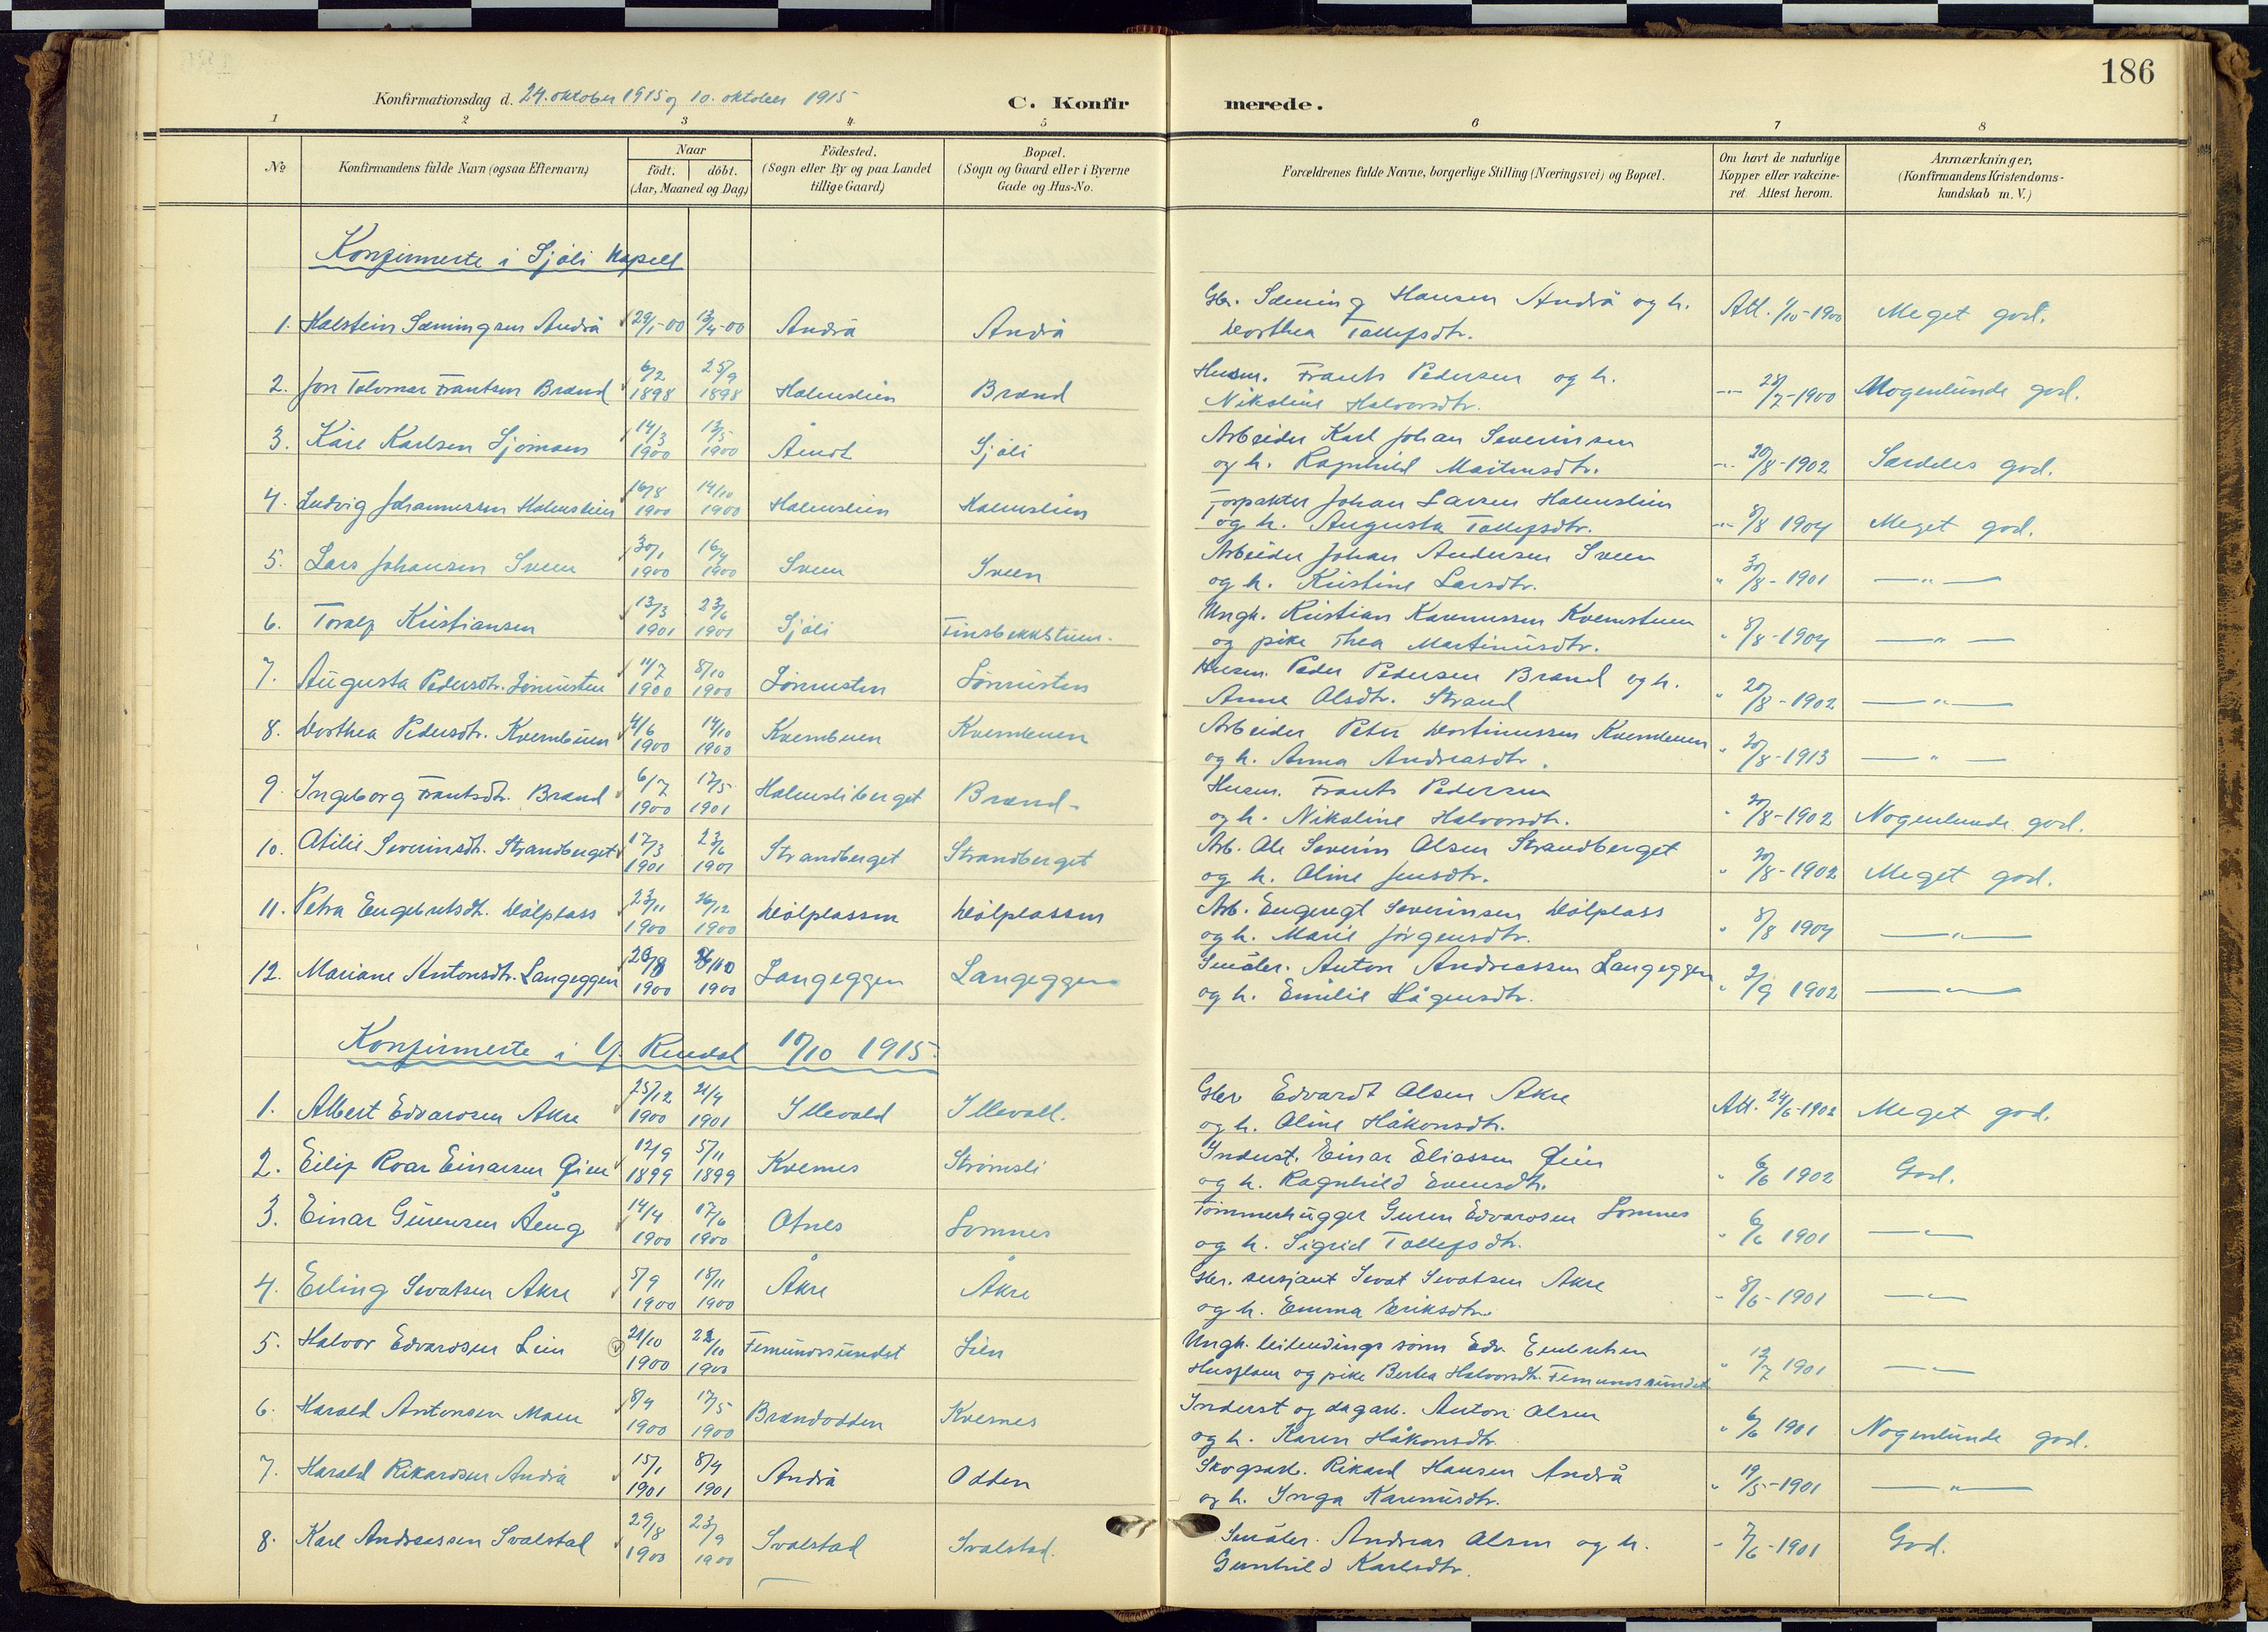 186
Konfirmationsdag d. 24. oktober 1915 og 10. oktober 1915
C. Konfirmerede.
1 2 3 4 5 6 7 8
No
Konfirmandens fulde Navn (ogsaa Efternavn)
Naar
födt. döbt.
(Aar, Maaned og Dag)
Födested.
(Sogn eller By og paa Landet
tillige Gaard)
Bopæl.
(Sogn og Gaard eller i Byerne
Gade og Hus-No.
Forældrenes fulde Navne, borgerlige Stilling (Næringsvei) og Bopæl.
Om havt de naturlige
Kopper eller vakcine-
ret. Attest herom.
Anmærkninger,
(Konfirmandens Kristendoms-
kundskab m. V.)
Konfirmerte i Sjøli Kapell
1. Halstein Sæmingsen Andrå 29/1-00 13/4-00 Andrå Andrå Gbr. Sæming Hansen Andrå og h. Att. 1/10-1900 Meget god.
Dorthea Tollefsdtr.
2. Jon Tolomar Frantsen Brænd 6/2 1898 25/9 1898 Holmslien Brænd Husm. Frants Pedersen og h. 28/7-1900 Nogenlunde god.
Nikoline Halvorsdtr.
3. Kåre Karlsen Sjømoen 14/3 1900 13/5 1900 Åmot Sjøli Arbeider Karl Johan Severinsen
og h. Ragnhild Maitensdtr. 20/8-1902 Særdeles god.
4. Ludvig Johannessen Holmslien 16/8 1900 14/10 1900 Holmslien Holmslien Forpakter Johan Larsen Holmslien
og h. Augusta Tollefsdtr. 8/8 1904 Meget god.
5. Lars Johansen Sveen 30/1 1900 16/4 1900 Sveen Sveen Arbeider Johan Andersen Sveen
og h. Kristine Larsdtr. " 30/8-1901 — " —
6. Toralf Kristiansen 13/3 1901 23/6 1901 Sjøli Finsbekkstuen. Ungk. Kristian Karenussen Kvernstuen
og pike Thea Martinusdtr. " 8/8-1904 — " —
7. Augusta Pedersdtr. Lønnusten 11/7 1900 8/10 1900 Lønnusten Lønnusten Husm. Peder Pedersen Brænd og h.
Anne Olsdtr. Strand " 20/8-1902 — " —
8. Dorthea Pedersdtr. Kvernbuen 4/6 1900 14/10 1900 Kvernbuen Kvernbuen Arbeider Peter Dortinussen Kvernbuen
og h. Anna Andreasdtr. " 20/8-1913 — " —
9. Ingeborg Frantsdtr. Brænd 6/7 1900 17/5 1901 Holmsliberget Brænd Husm. Frants Pedersen
og h. Nikoline Halvorsdtr. " 20/8-1902 Nogenlunde god.
10. Otilie Severinsdtr. Strandberget 17/3 1901 23/6 1901 Strandberget Strandberget Arb. Ole Severin Olsen Strandberget
og h. Oline Jensdtr. " 20/8-1902 Meget god.
11. Petra Engebretsdtr. Dølplass 23/11 1900 26/12 1900 Dølplassen Dølplassen Arb. Engeregt Severinsen Dølplass
og h. Marie Jørgensdtr. " 8/8 1904 — " —
12. Mariane Antonsdtr. Langeggen 1900 1900 Langeggen Langeggen Småbr. Anton Andreassen Langeggen
og h. Emilie Hågensdtr. " 2/9 1902 — " —
Konfirmerte i Y. Rendal 10/10 1915.
1. Albert Edvardsen Akre 25/12 1900 21/4 1901 Illevold Illevoll. Gbr Edvardt Olsen Akre
og h. Oline Håkonsdtr. Att. 24/6-1902 Meget god.
2. Eilif Roar Einarsen Øien 12/9 1899 5/11 1899 Kvernes Strømsli Inderst. Einar Eliassen Øien
og h. Ragnhild Evensdtr. " 6/6 1902 God.
3. Einar Gurensen Åeng 14/4 1900 17/6 1900 Otnes Lomnes Tømmerhugger Guren Edvardsen Lomnes
og h. Sigrid Tollefsdtr. " 6/6 1901 — " —
4. Erling Sivatsen Akre 5/9 1900 18/11 1900 Åkre Åkre Gbr. sersjant Sivat Sivatsen Akre
og h. Emma Eriksdtr. " 8/6-1901 — " —
5. Halvor Edvardsen Lien 21/10 1900 1900 Femundssundet Lien Ungk. leilendings sønn Edv. Embretsen
Husfloen og pike Berthea Halvorsdtr. Femundssundet " 12/7 1901 — " —
6. Harald Antonsen Moen 8/4 1900 17/5 1900 Brændodden Kvernes Inderst og dagarb. Anton Olsen
og h. Karen Håkonsdtr. " 6/6 1901 Nogenlunde god.
7. Harald Rikardsen Andrå 15/1 1901 8/4 1901 Andrå Odden Skogsarb. Rikard Hansen Andrå
og h. Inga Karenusdtr. " 19/5-1901 — " —
8. Karl Andreassen Svalstad 29/8 1900 23/9 1900 Svalstad Svalstad. Småbr. Andreas Olsen og h.
Gunhild Karlsdtr. " 7/6-1901 God.